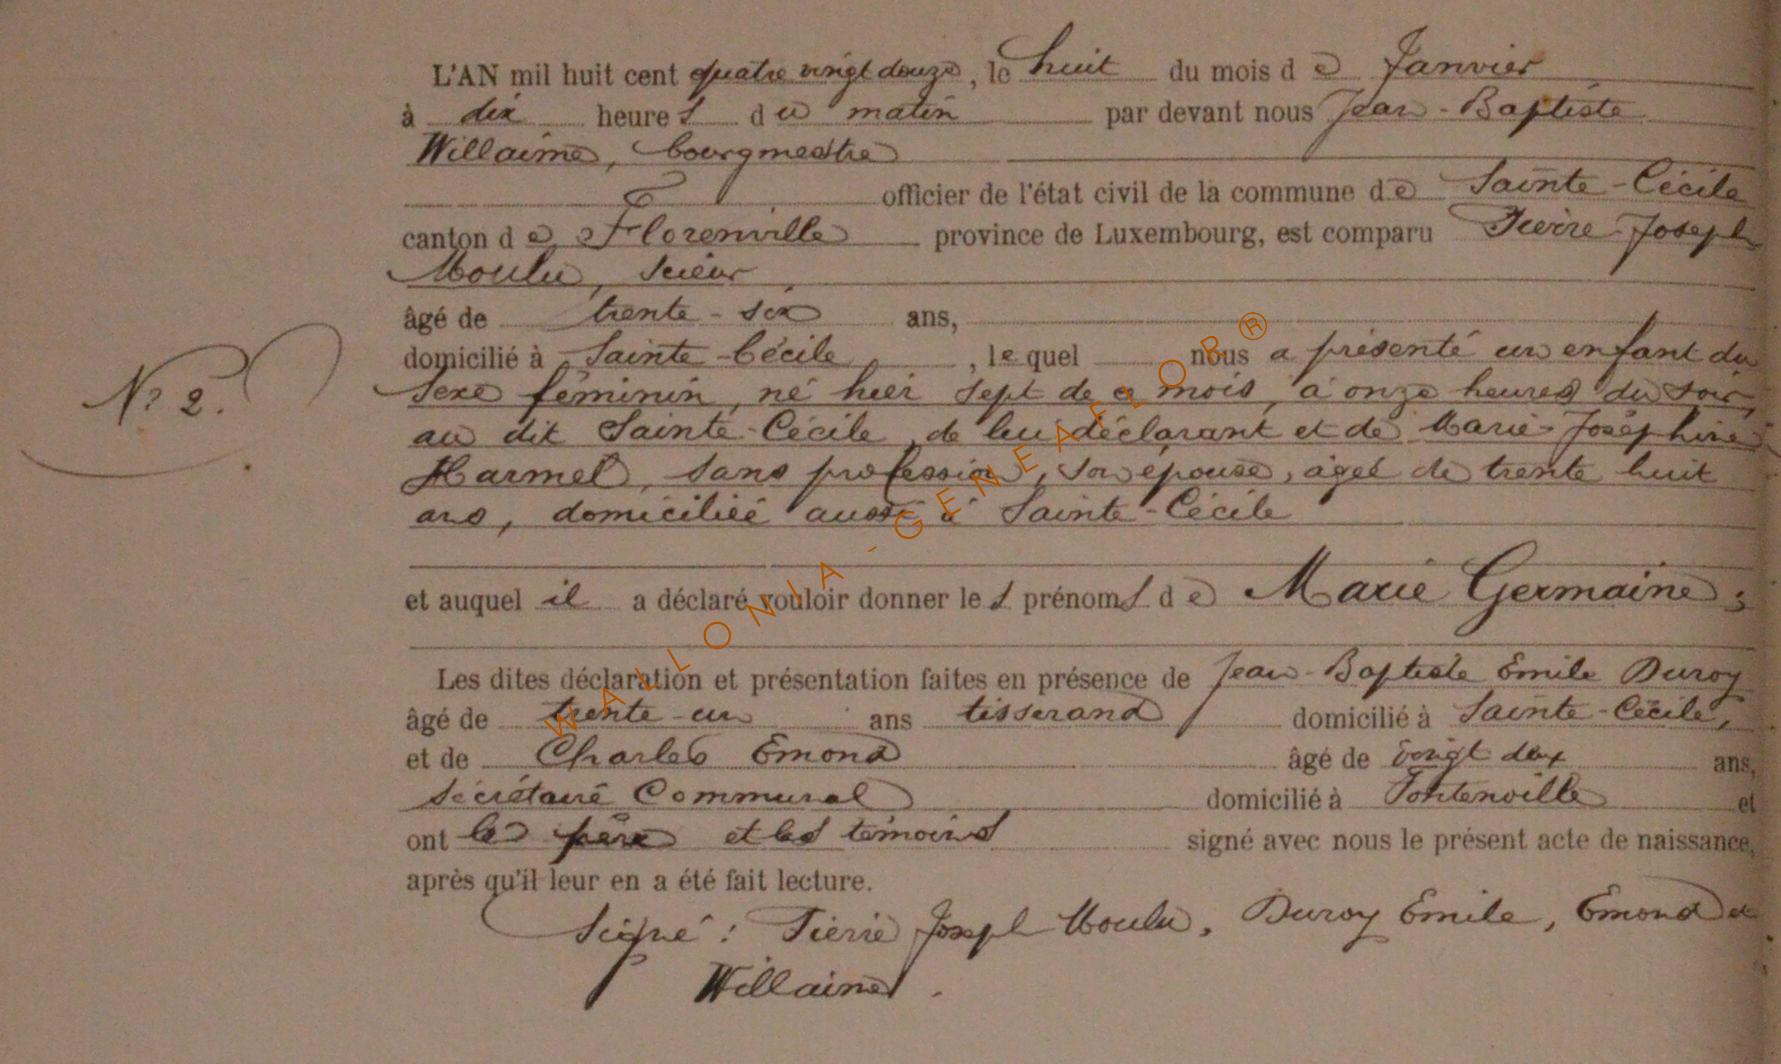 L'AN mil huit cent quatre vingt douze, le huit du mois de Janvier
à dix heures du matin par devant nous Jean-Baptiste
Willaime, bourgmestre
officier de l'état civil de la commune de Sainte-Cécile
canton de Florenville province de Luxembourg, est comparu Pierre Joseph
Moulu, scieur
âgé de trente-six ans,
domicilié à Sainte-Cécile, lequel nous a présenté un enfant du
N° 2.
sexe féminin, né hier sept de ce mois, à onze heures du soir,
au dit Sainte-Cécile, de lui déclarant et de Marie-Joséphine
Harmel, sans profession, son épouse, âgée de trente huit
ans, domiciliée aussi à Sainte-Cécile
et auquel il a déclaré vouloir donner les prénoms de Marie Germaine;
Les dites déclaration et présentation faites en présence de Jean-Baptiste Emile Duroy
âgé de trente-un ans tisserand domicilié à Sainte-Cécile,
et de Charles Emond âgé de vingt deux ans,
secrétaire Communal domicilié à Fontenoille et
ont le père et les témoins signé avec nous le présent acte de naissance,
après qu'il leur en a été fait lecture.
Signé: Pierre Joseph Moulu, Duroy Emile, Emond et
Willaime.
WALLONIA-GENEAFLOR®